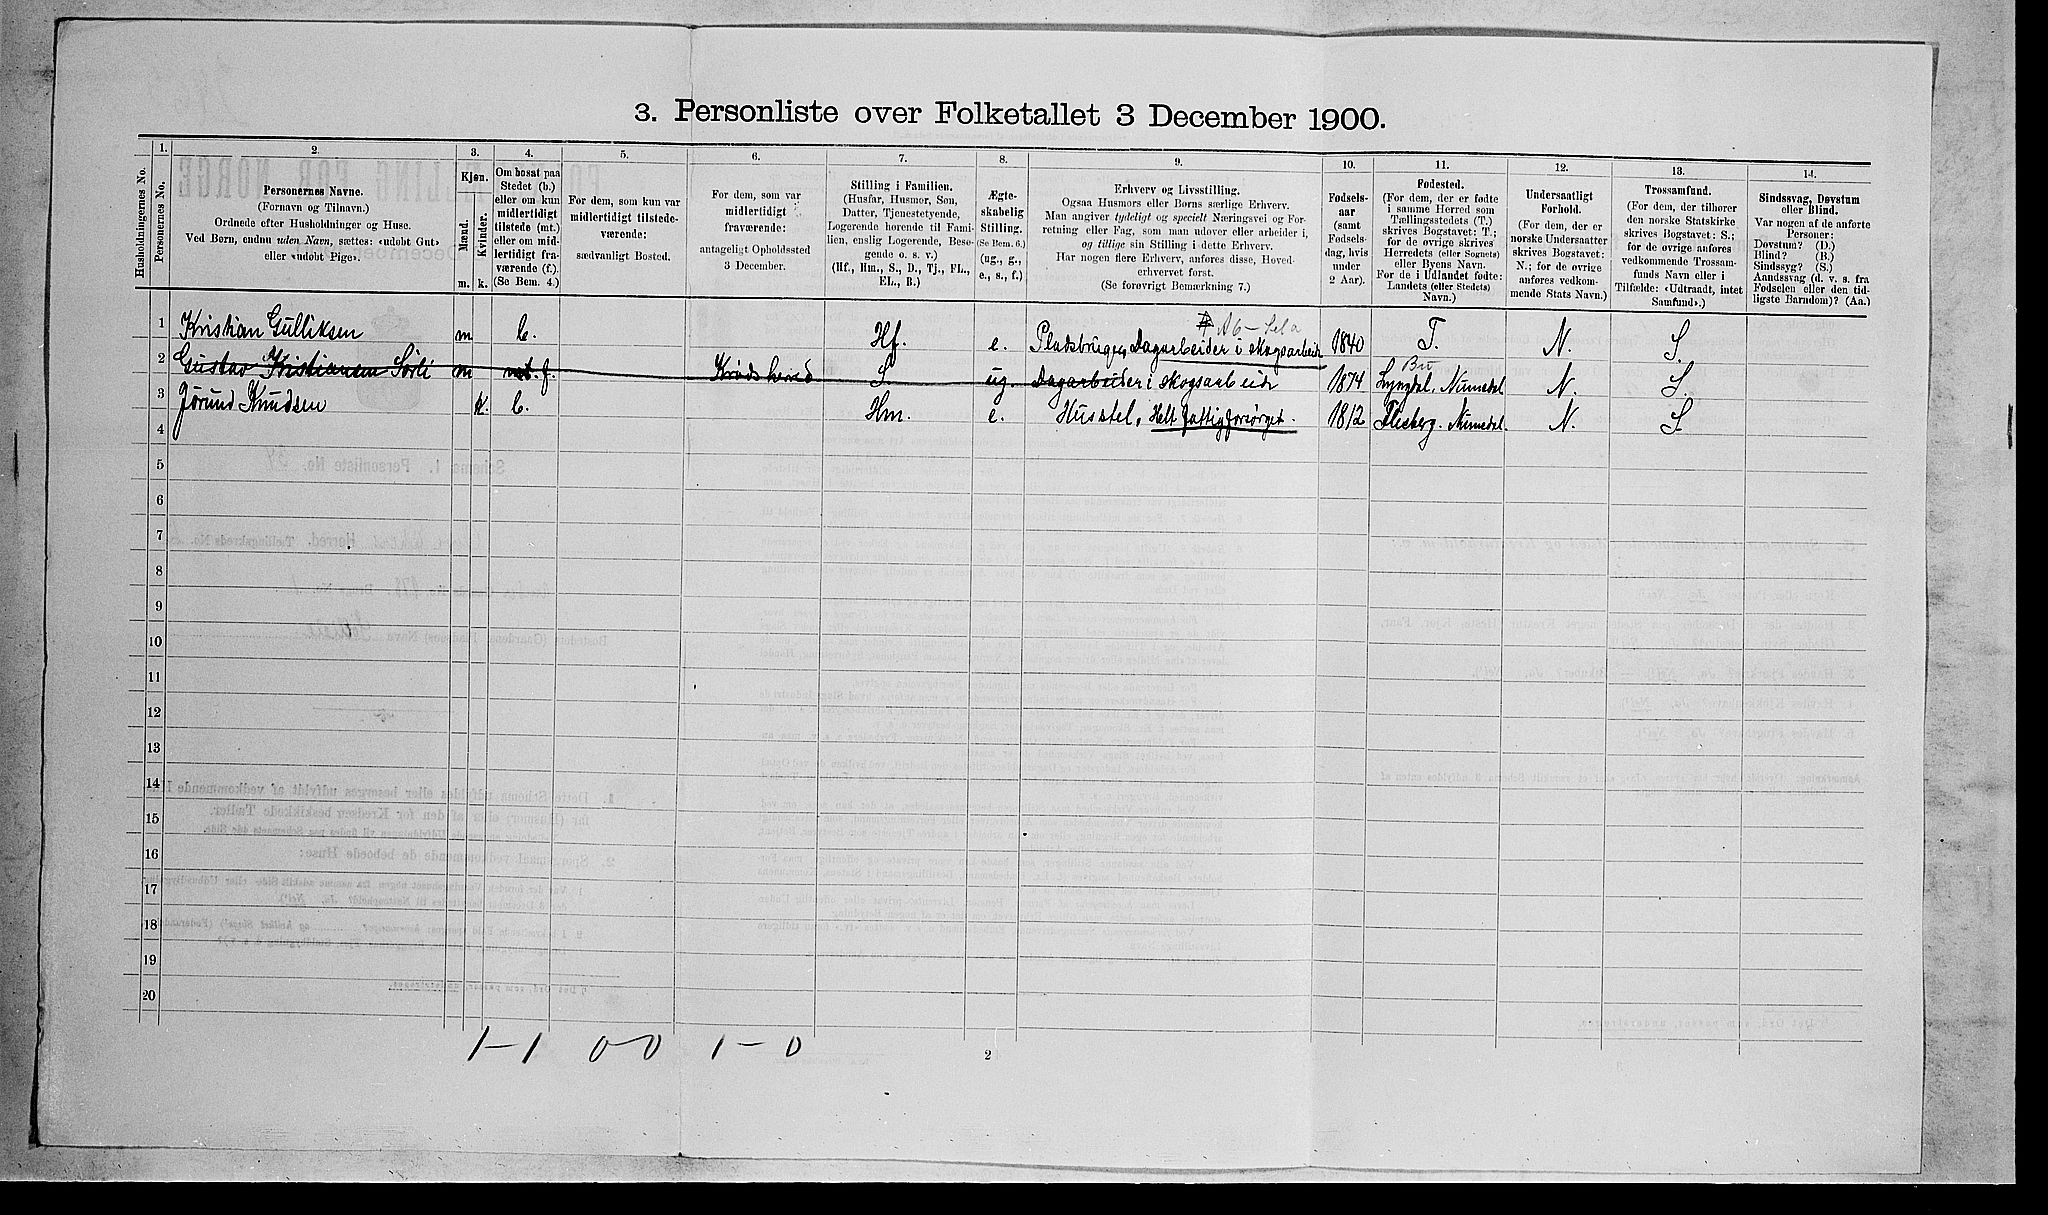 3. Personliste over Folketallet 3 December 1900.
1. 2. 3. 4. 5. 6. 7. 8. 9. 10. 11. 12. 13. 14.
Husholdningernes No.
Personernes No.
Personernes Navne.
(Fornavn og Tilnavn.)
Ordnede efter Husholdninger og Huse.
Ved Børn, endnu uden Navn, sættes: «udøbt Gut»
eller «udøbt Pige».
Kjøn.
Mænd.
Kvinder.
m. k.
Om bosat paa
Stedet (b.)
eller om kun
midlertidigt
tilstede (mt.)
eller om mid-
lertidigt fra-
værende (f.)
(Se Bem. 4.)
For dem, som kun var
midlertidigt tilstede-
værende:
sædvanligt Bosted.
For dem, som var
midlertidigt
fraværende:
antageligt Opholdssted
3 December.
Stilling i Familien.
(Husfar, Husmor, Søn,
Datter, Tjenestetyende,
Logerende hørende til Fami-
lien, enslig Logerende, Besø-
gende o. s. v.)
(Hf., Hm., S., D., Tj., FL.,
EL., B.)
Ægte-
skabelig
Stilling.
(Se Bem. 6.)
(ug., g.,
e., s., f.)
Erhverv og Livsstilling.
Ogsaa Husmors eller Børns særlige Erhverv.
Man angiver tydeligt og specielt Næringsvei og For-
retning eller Fag, som man udøver eller arbeider i,
og tillige sin Stilling i dette Erhverv.
Har nogen flere Erhverv, anføres disse, Hoved-
erhvervet først.
(Se forøvrigt Bemærkning 7.)
Fødsels-
aar
(samt
Fødsels-
dag, hvis
under
2 Aar).
Fødested.
(For dem, der er fødte
i samme Herred som
Tællingsstedets (T.)
skrives Bogstavet: T.;
for de øvrige skrives
Herredets (eller Sognets)
eller Byens Navn.
For de i Udlandet fødte:
Landets (eller Stedets)
Navn.)
Undersaatligt
Forhold.
(For dem, der er
norske Undersaatter
skrives Bogstavet:
N.; for de øvrige
anføres vedkom-
mende Stats Navn.)
Trossamfund.
(For dem, der tilhører
den norske Statskirke
skrives Bogstavet: S.;
for de øvrige anføres
vedkommende Trossam-
funds Navn eller i
Tilfælde: «Udtraadt, intet
Samfund».)
Sindssvag, Døvstum
eller Blind.
Var nogen af de anførte
Personer:
Døvstum? (D.)
Blind? (B.)
Sindssyg? (S.)
Aandssvag (d. v. s. fra
Fødselen eller den tid-
ligste Barndom)? (Aa.)
1 Kristian Gulliksen m b. Hf. e. Pladsbruger, Dagarbeider i skogsarbeide 1840 T. N. S.
2 Gustav Kristiansen Sørli m mt. f. Krødsherred S. ug. Dagarbeider i skogsarbeide 1874 Lyngdal, Numedal N. S.
3 Jørund Knudsen k. b. Hm. e. Husstel, Helt fattigforsørget. 1812 Flesberg. Numedal. N. S.
4
5
6
7
8
9
10
11
12
13
14
15
16
17
18
19
20
1-1 0-0 1-0
2